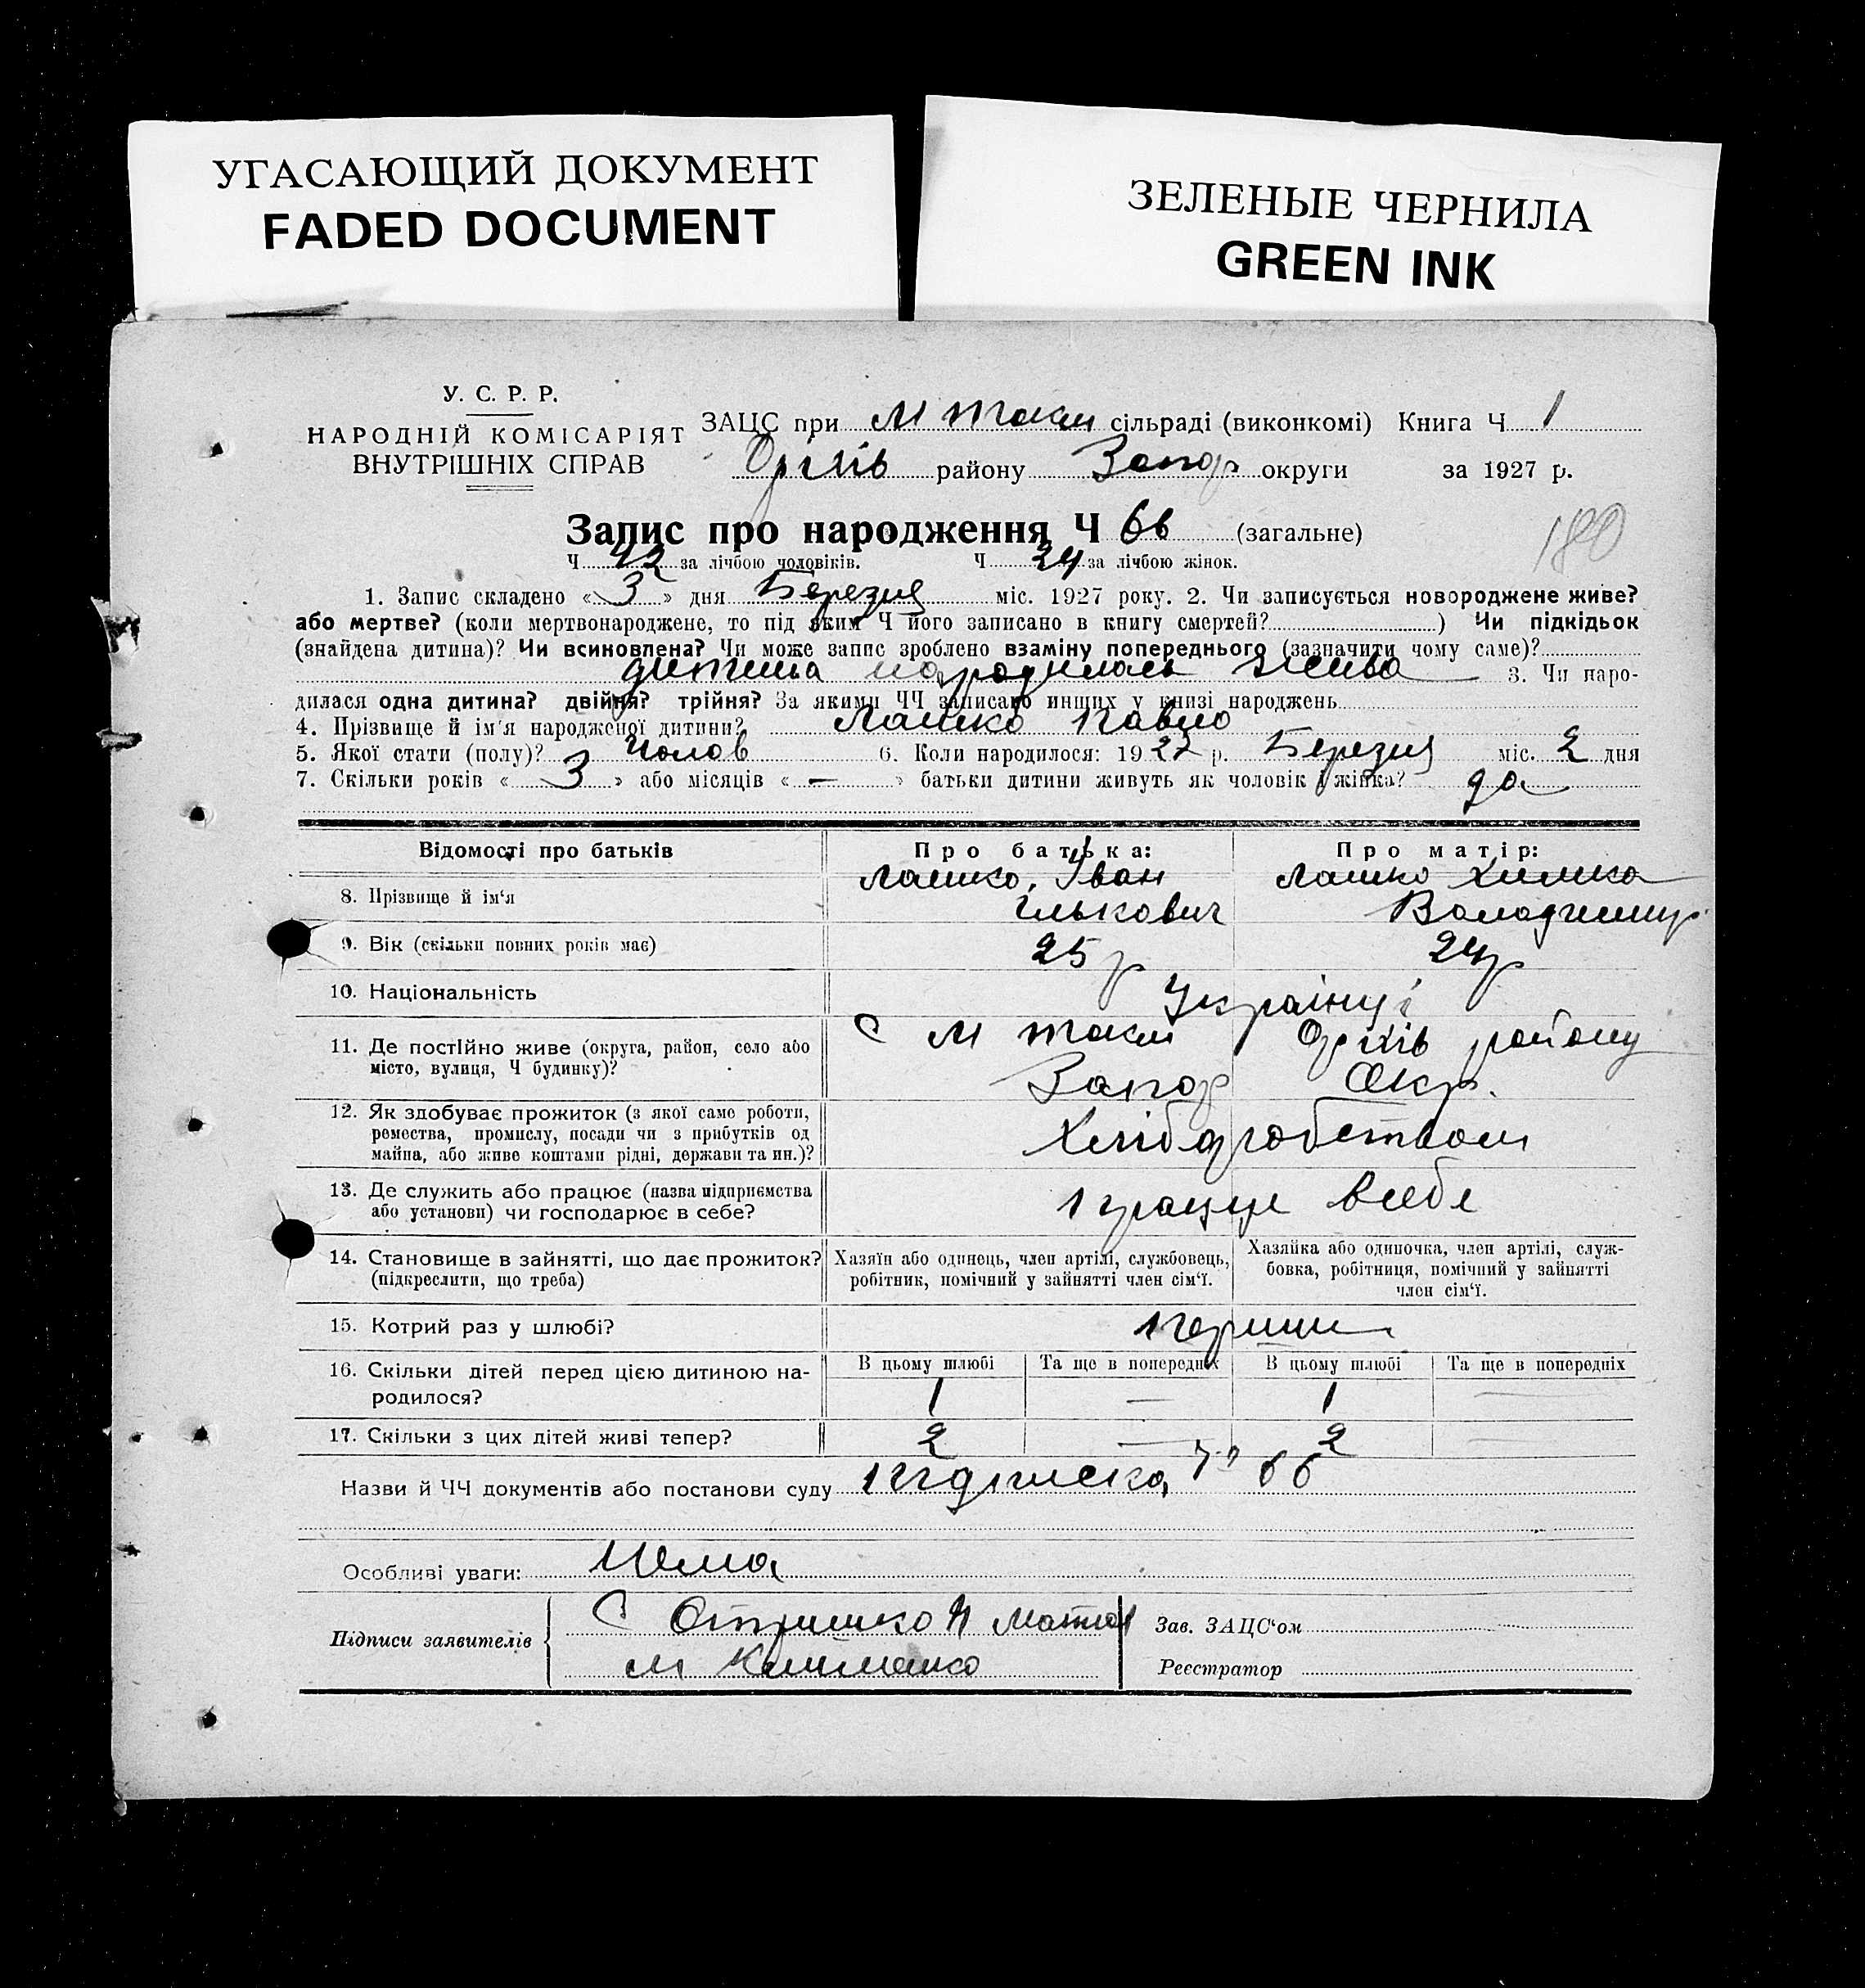 УГАСАЮЩИЙ ДОКУМЕНТ
FADED DOCUMENT
ЗЕЛЕНЫЕ ЧЕРНИЛА
GREEN INK
У. С. Р. Р.
НАРОДНІЙ КОМІСАРІЯТ
ВНУТРІШНІХ СПРАВ
ЗАЦС при М Токм сільраді (виконкомі) Книга Ч 1
Оріхів району Запор округи за 1927 р.
Запис про народження Ч 66 (загальне)
180
Ч 42 за лічбою чоловіків. Ч 24 за лічбою жінок.
1. Запис складено «3» дня Березня міс. 1927 року. 2. Чи записується новороджене живе?
або мертве? (коли мертвонароджене, то під яким Ч його записано в книгу смертей? ) Чи підкідьок
(знайдена дитина)? Чи всиновлена? Чи може запис зроблено взаміну попереднього (зазначити чому саме)?
дитина народилась жива 3. Чи наро-
дилася одна дитина? двійня? трійня? За якими ЧЧ записано инших у книзі народжень
4. Прізвище й ім'я народженої дитини? Лашко Павло
5. Якої стати (полу)? Чолов 6. Коли народилося: 1927 р. Березня міс. 2 дня
7. Скільки років «3» або місяців «—» батьки дитини живуть як чоловік і жінка? да
Відомості про батьків Про батька: Про матір:
8. Прізвище й ім'я Лашко, Іван Ількович Лашко Химка Володимир
9. Вік (скільки повних років має) 25 р 24 р
10. Національність Українці
11. Де постійно живе (округа, район, село або
місто, вулиця, Ч будинку)?
С М Токм Оріхів району
Запор Окр.
12. Як здобуває прожиток (з якої саме роботи,
ремества, промислу, посади чи з прибутків од
майна, або живе коштами рідні, держави та ин.)?
Хліборобством
13. Де служить або працює (назва підприємства
або установи) чи господарює в себе?
Працює в себе
14. Становище в зайнятті, що дає прожиток?
(підкреслити, що треба)
Хазяїн або одинець, член артілі, службовець,
робітник, помічний у зайнятті член сім'ї.
Хазяйка або одиночка, член артілі, служ-
бовка, робітниця, помічний у зайнятті
член сім'ї.
15. Котрий раз у шлюбі? Перший
16. Скільки дітей перед цією дитиною на-
родилося?
В цьому шлюбі Та ще в попередніх В цьому шлюбі Та ще в попередніх
1 — 1 —
17. Скільки з цих дітей живі тепер? 2 — 2
Назви й ЧЧ документів або постанови суду Підписка 66
Особливі уваги: Нема
Підписи заявителів
С
М
Зав. ЗАЦС'ом
Реєстратор